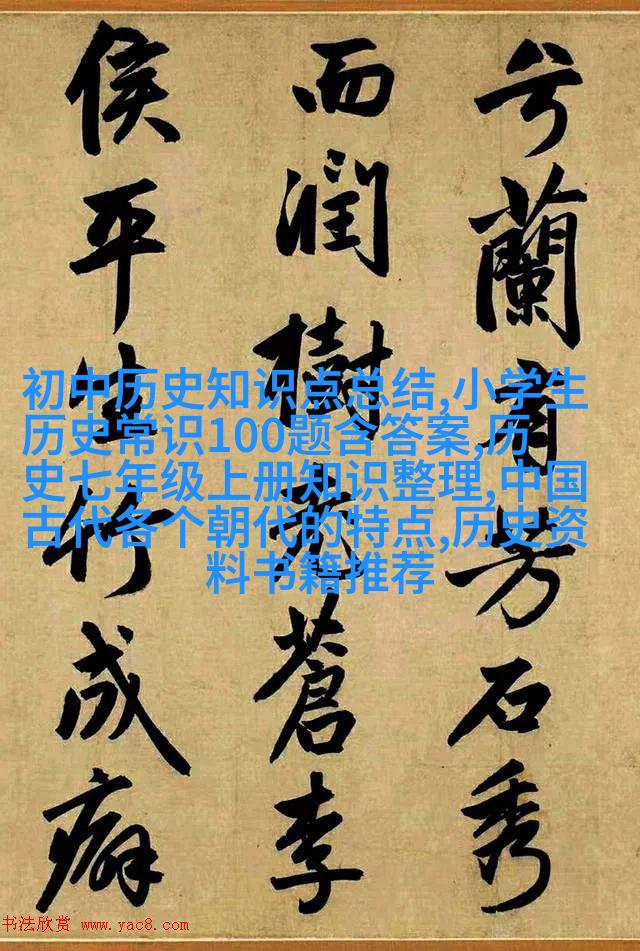 兮蘭有芳石秀
而潤樹老蒼李
侯平生竹成癖
初中历史知识点总结,小学生
历史常识100题含答案,历
史七年级上册知识整理,中国
古代各个朝代的特点,历史资
料书籍推荐
书法欣赏 www.yac8.com